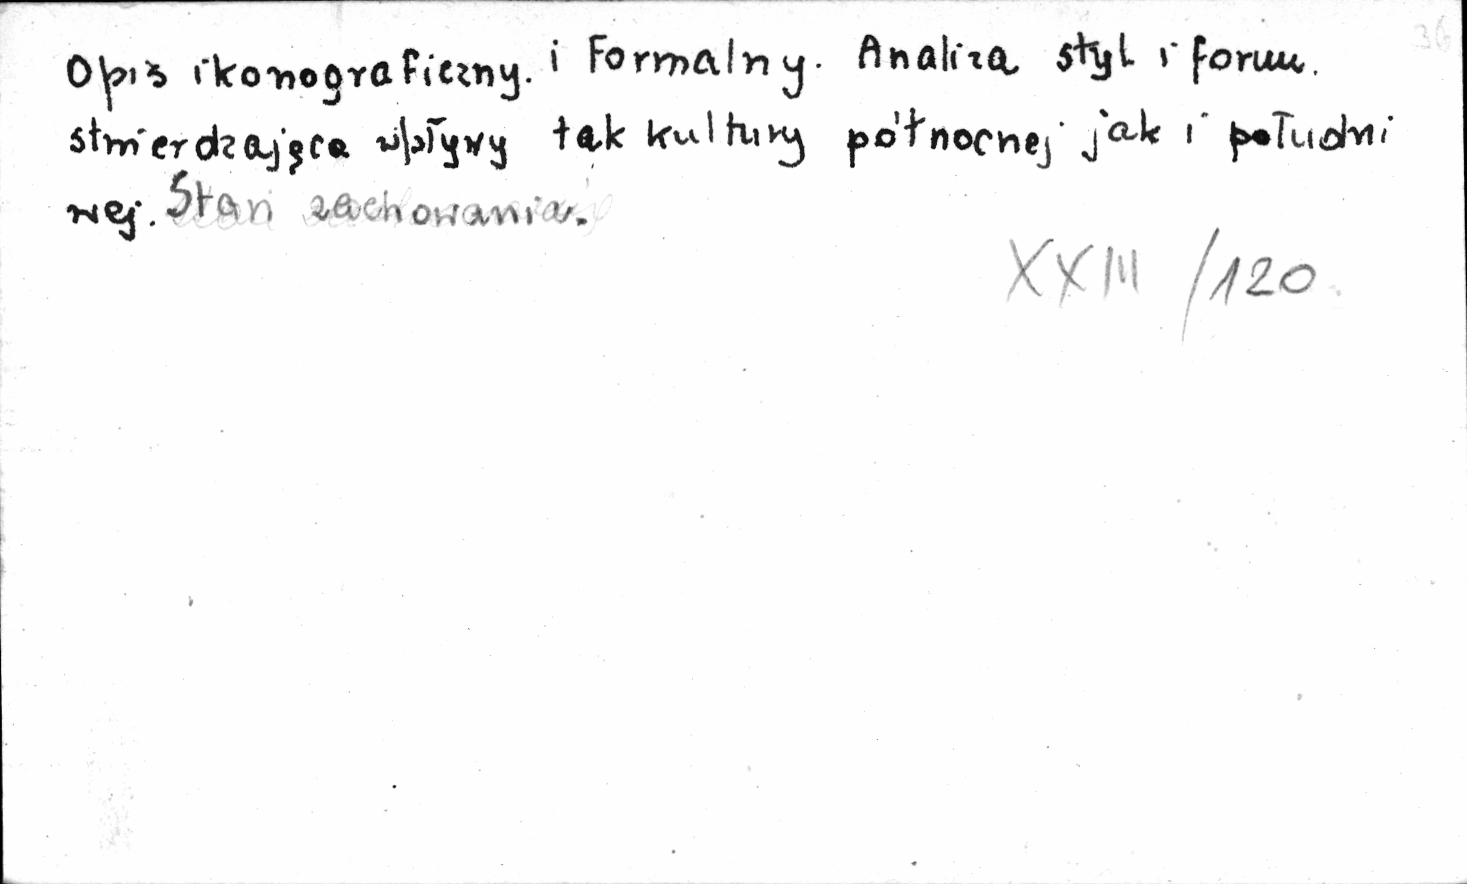 Opis ikonograficzny. i Formalny. Analiza styl i form.
stwierdzająca wpływy tak kultury północnej jak i południ
wej. Stan zachowania.
XXIII /120
36